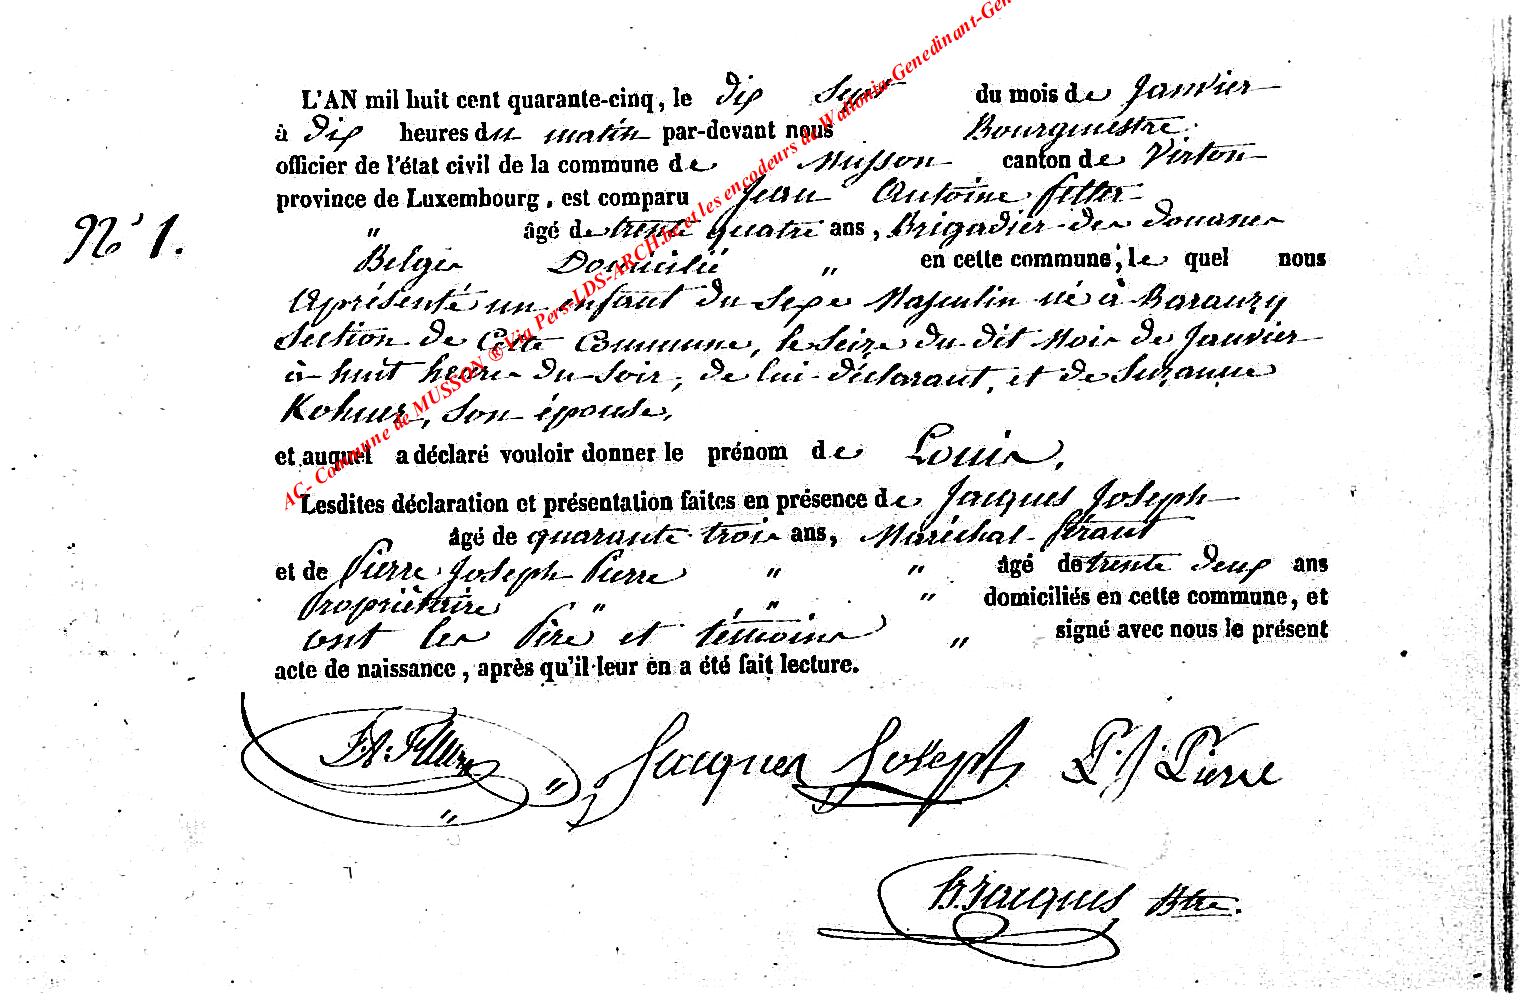 L'AN mil huit cent quarante-cinq, le dix Sept du mois de Janvier
à dix heures du matin par-devant nous Bourgmestre.
officier de l'état civil de la commune de Musson canton de Virton
province de Luxembourg, est comparu Jean Antoine
N° 1. " âgé de trente quatre ans, Brigadier des douanes
Belges Domicilié " en cette commune, le quel nous
a présenté un enfant du sexe Masculin né à Baranzy
section de Cette Commune, le seize du dit Mois de Janvier
à huit heures du soir, de lui déclarant, et de Suzanne
son épouse,
et auquel a déclaré vouloir donner le prénom de Louis.
Lesdites déclaration et présentation faites en présence de Jacques Joseph
âgé de quarante trois ans, Maréchal ferant
et de Pierre Joseph Pierre " " âgé de trente deux ans
Propriétaire " " " domiciliés en cette commune, et
ont les Père et témoins " signé avec nous le présent
acte de naissance, après qu'il leur en a été fait lecture.
Jacques Joseph P. J. Pierre
Jacques Btre.
AC- Commune de MUSSON ® Via Pers-LDS-ARCH.be et les encodeurs de Wallonia-Genedinant-Gen